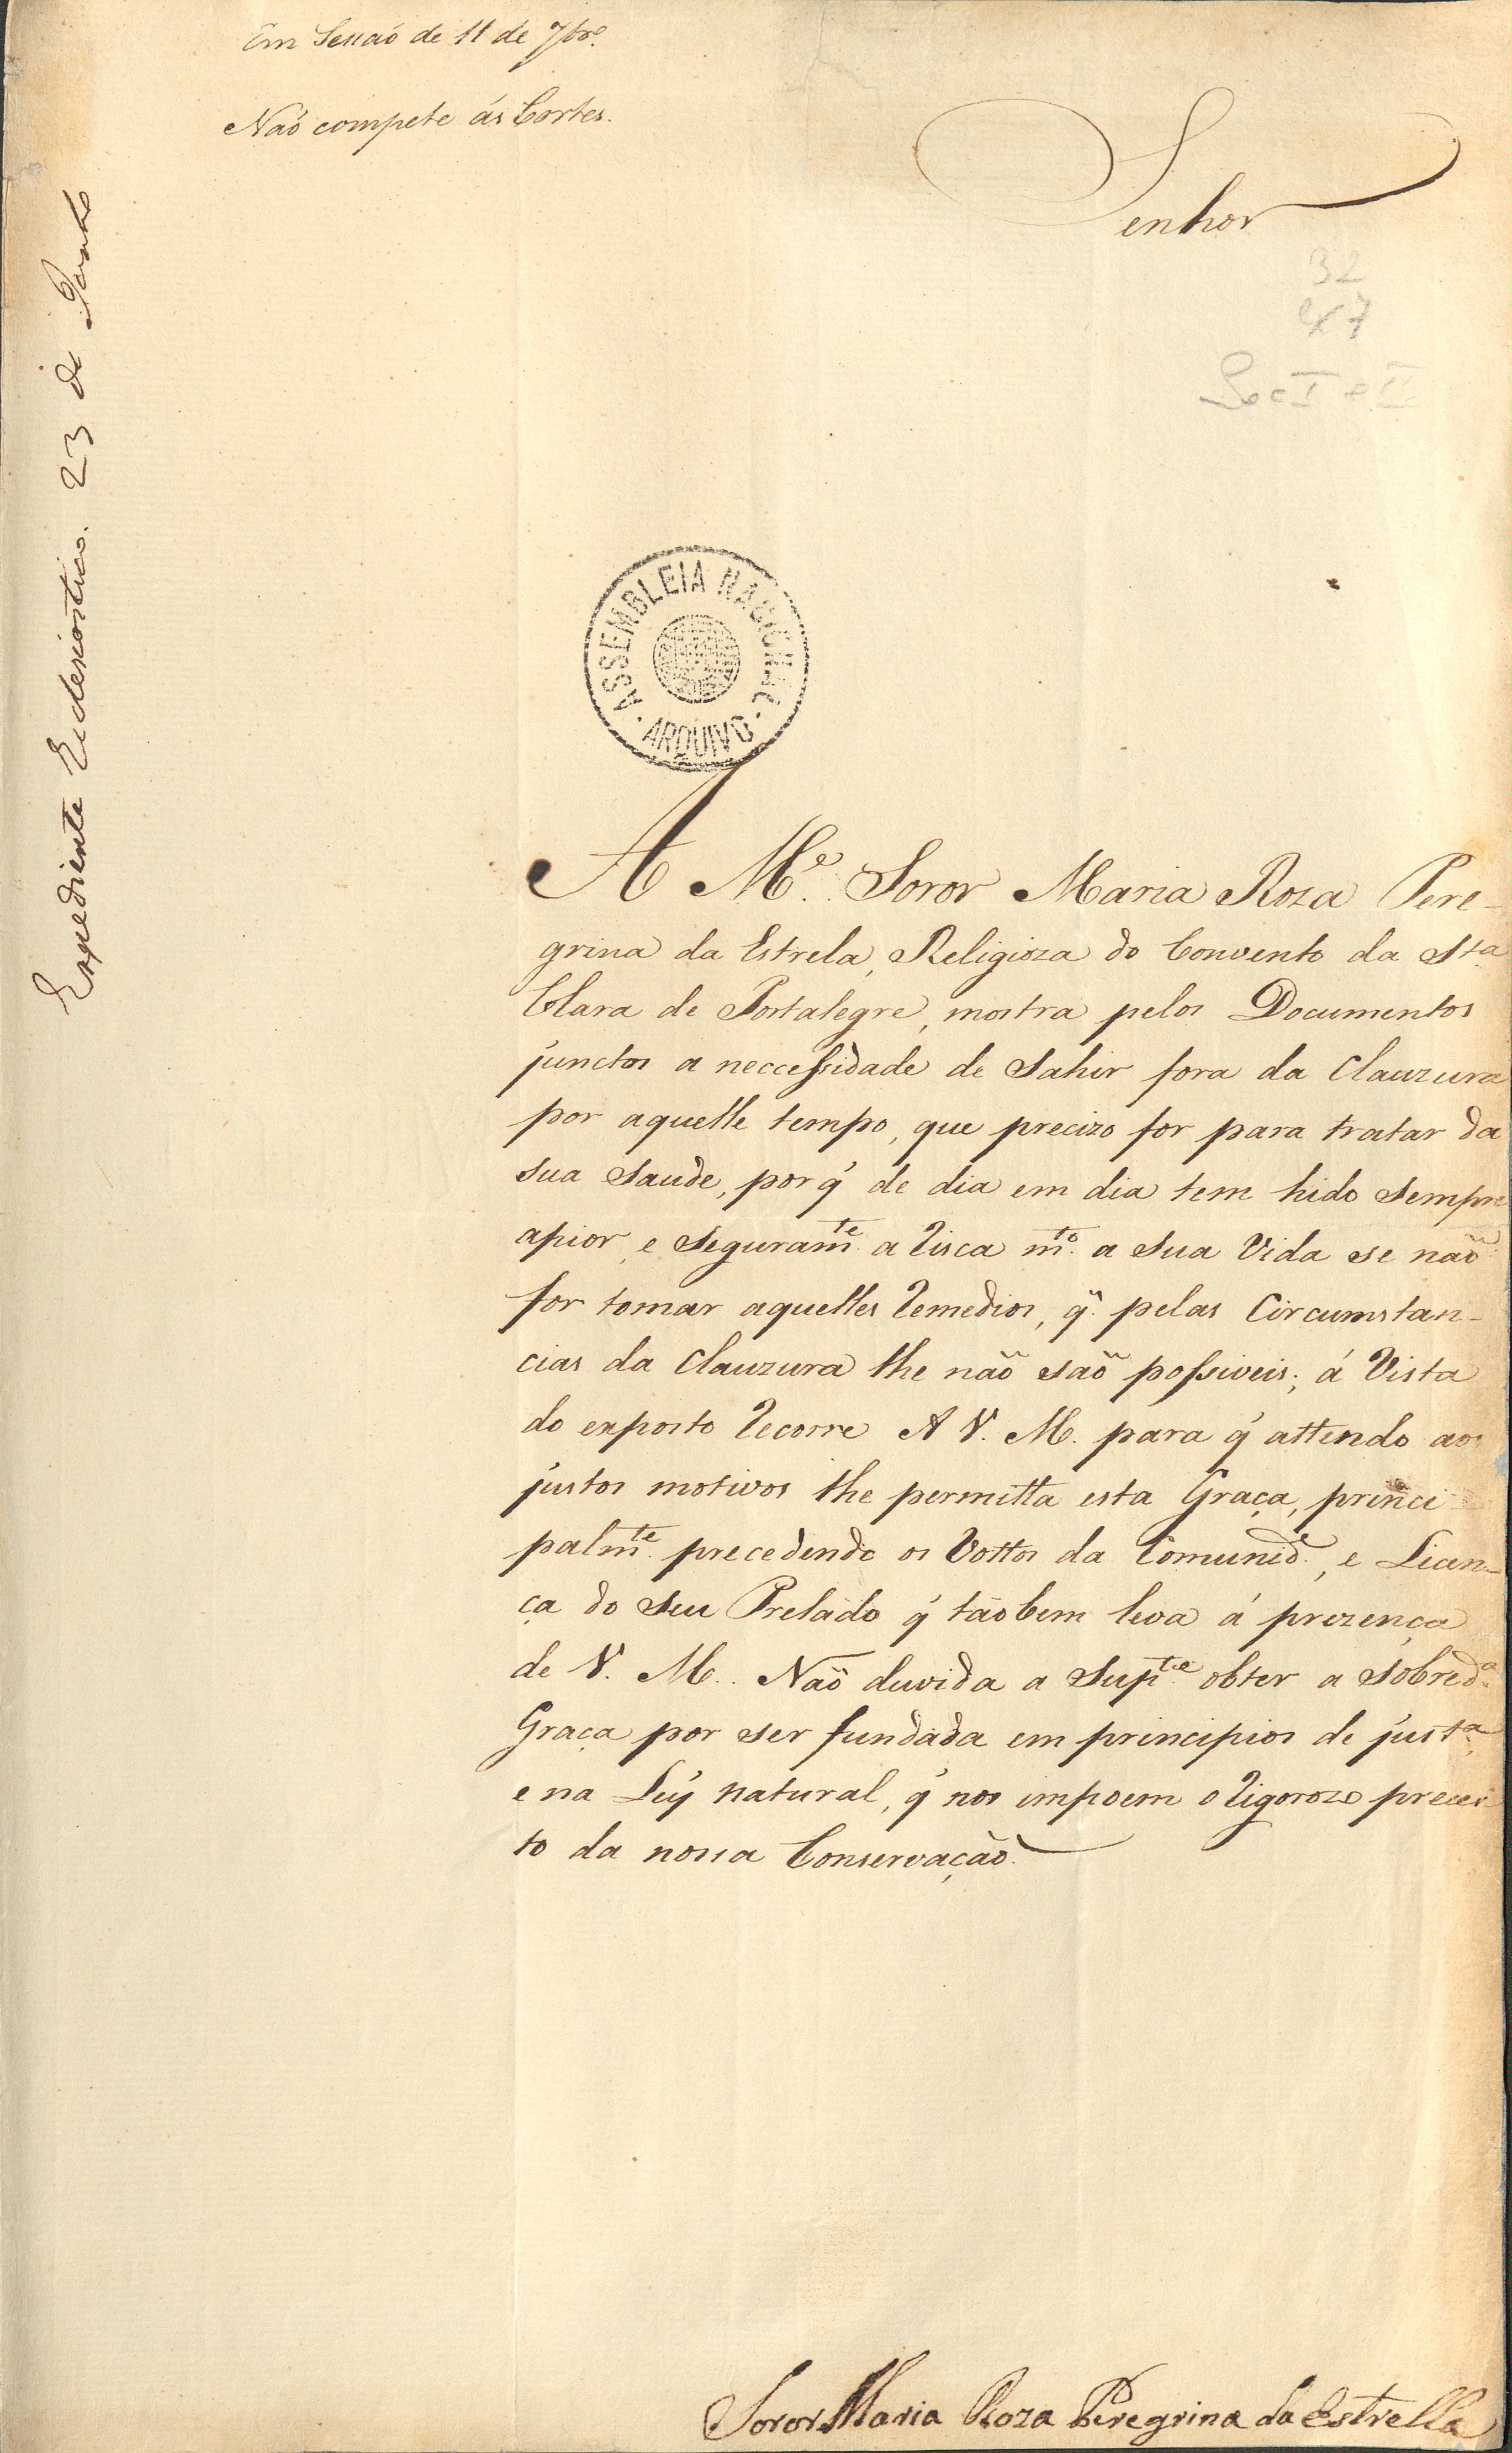 Em Sessaõ de 11 de 7brº.
Naõ compete ás Cortes.
Senhor
32
cx 7
Sec I e II
Expediente Ecclesiastico. 23 de Junho
ASSEMBLEIA NACIONAL
ARQUIVO
A Mᵉ. Soror Maria Roza Pere-
grina da Estrela, Religioza do Convento da Stª
Clara de Portalegre, mostra pelos Documentos
junctos a neccessidade de Sahir fora da Clauzura
por aquelle tempo, que precizo for para tratar da
sua Saude, por q̃ de dia em dia tem hido Sempre
apior, e Seguramᵗᵉ. a Risca mᵗᵒ. a sua Vida se naõ
for tomar aquelles Remedios, q̃. pelas Circumstan-
cias da Clauzura lhe naõ saõ possiveis; á Vista
do exposto Recorre A V. M. para q̃ attendo aos
justos motivos lhe permitta esta Graça, princi
palmᵗᵉ. precedendo os Vottos da Comunidᵉ., e Licen-
ça do Seu Prelado q̃ tãobem leva á prezença
de V. M.. Naõ duvida a Supᵗᵉ. obter a Sobredª.
Graça por ser fundada em principios de justª.
e na Ley natural, q̃ nos impoem o Rigorozo precei
to da nossa Conservação.
Soror Maria Roza Peregrina da Estrella